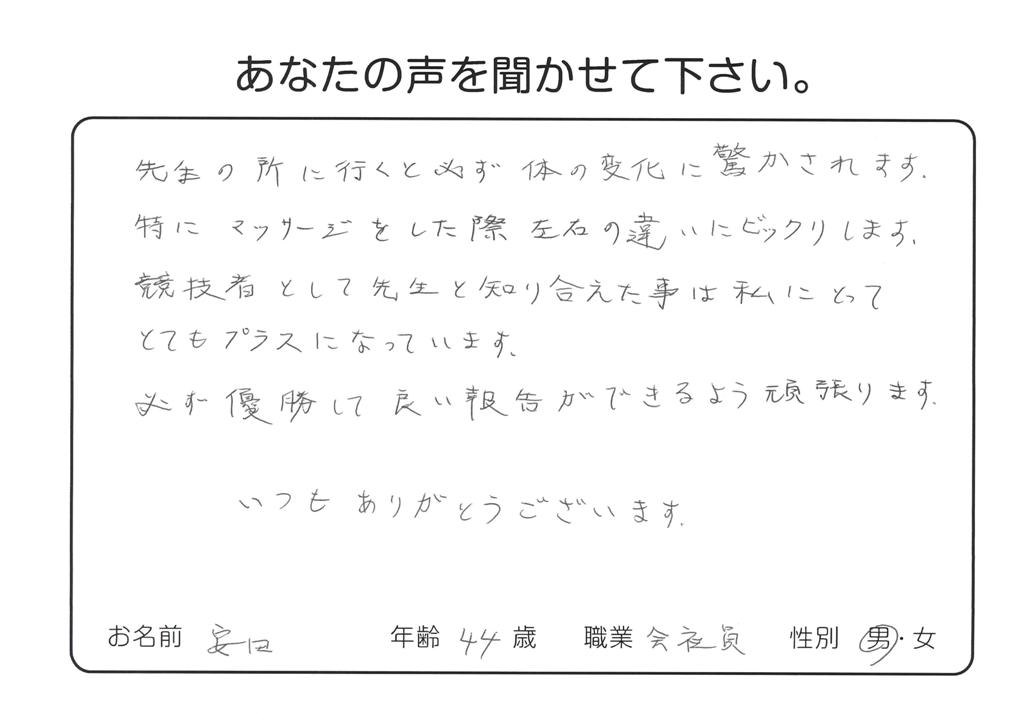 あなたの声を聞かせて下さい。
先生の所に行くと必ず体の変化に驚かされます。
特にマッサージをした際左右の違いにビックリします。
競技者として先生と知り合えた事は私にとって
とてもプラスになっています。
必ず優勝して良い報告ができるよう頑張ります。
いつもありがとうございます。
お名前 安田 年齢 44 歳 職業 会社員 性別 男・女